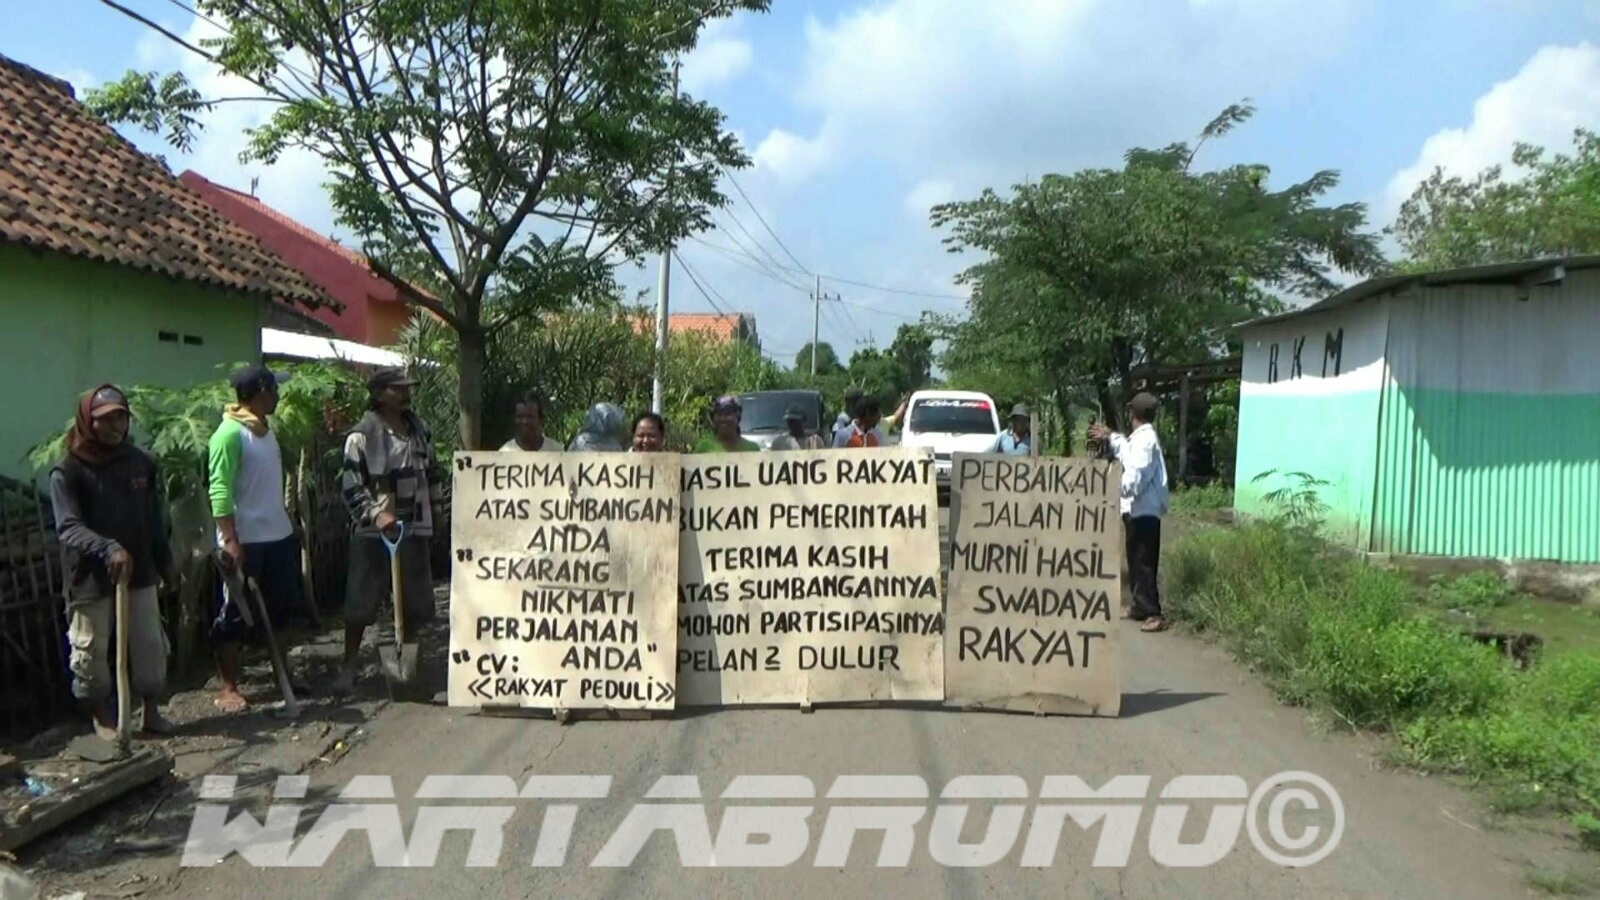 "TERIMA KASIH
ATAS SUMBANGAN
ANDA
"SEKARANG
NIKMATI
PERJALANAN
ANDA"
"CV:
«RAKYAT PEDULI»
HASIL UANG RAKYAT
BUKAN PEMERINTAH
TERIMA KASIH
ATAS SUMBANGANNYA
MOHON PARTISIPASINYA
PELAN2 DULUR
PERBAIKAN
JALAN INI
MURNI HASIL
SWADAYA
RAKYAT
RKM
WARTABROMO©